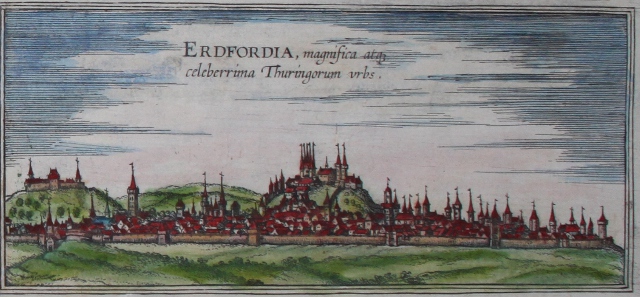 ERDFORDIA, magnifica atq;
celeberrima Thuringorum vrbs.